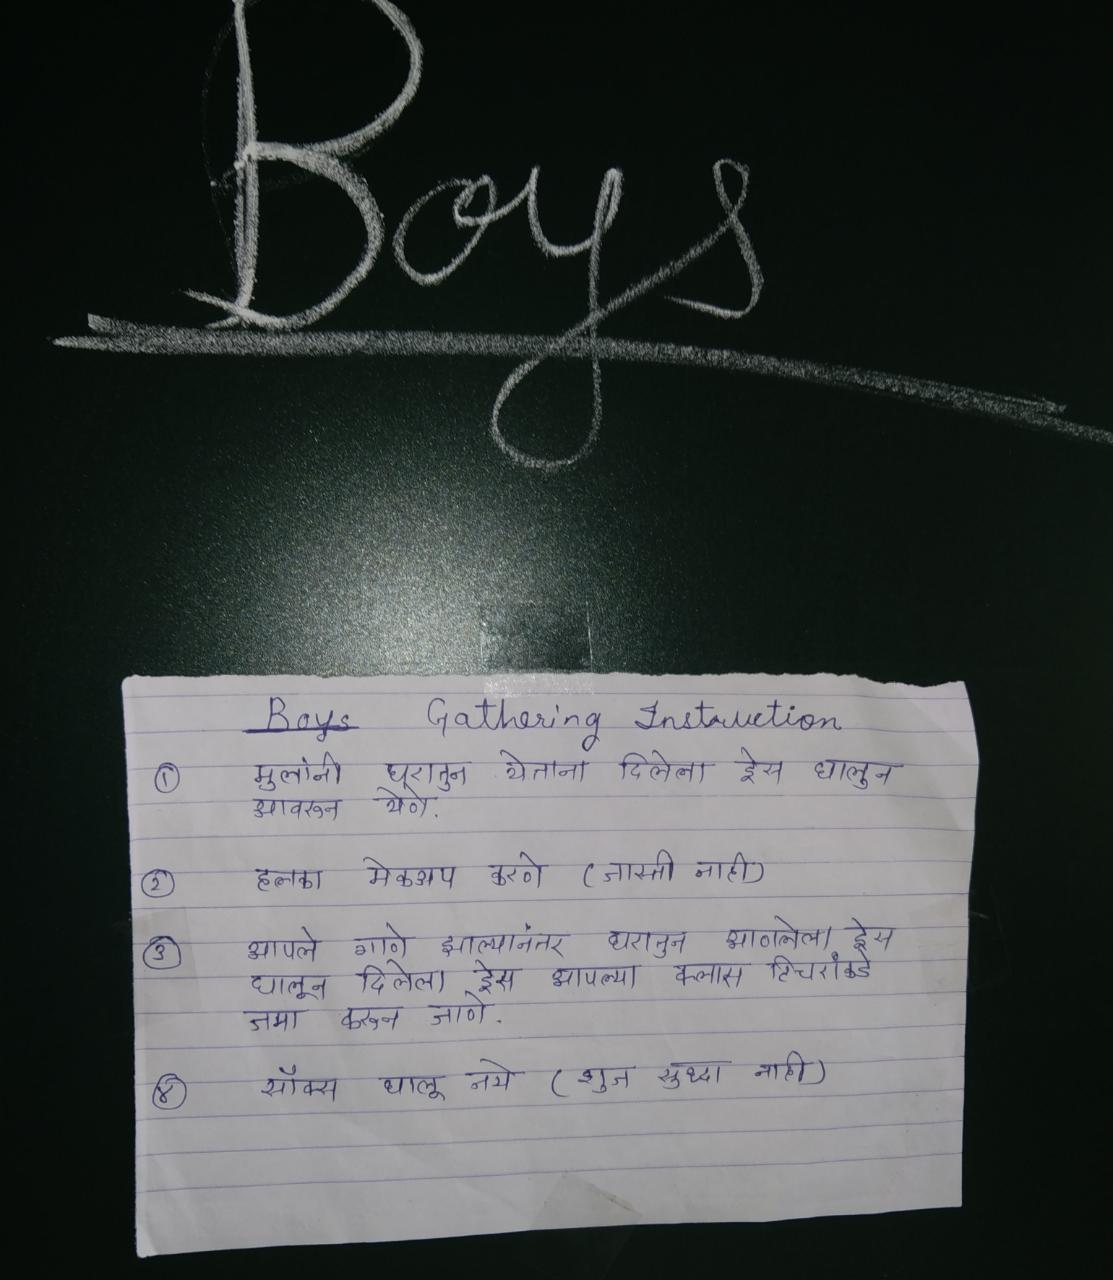 Boys
Boys Gathering Instruction
① मुलांनी घरातुन येताना दिलेला ड्रेस घालुन
आवरून येणे.
② हलका मेकअप करणे (जास्ती नाही)
③ आपले गाणे झाल्यानंतर घरातुन आणलेला ड्रेस
घालून दिलेला ड्रेस आपल्या क्लास टिचरांकडे
जमा करून जाणे.
④ सॉक्स घालू नये (शुज सुध्दा नाही)